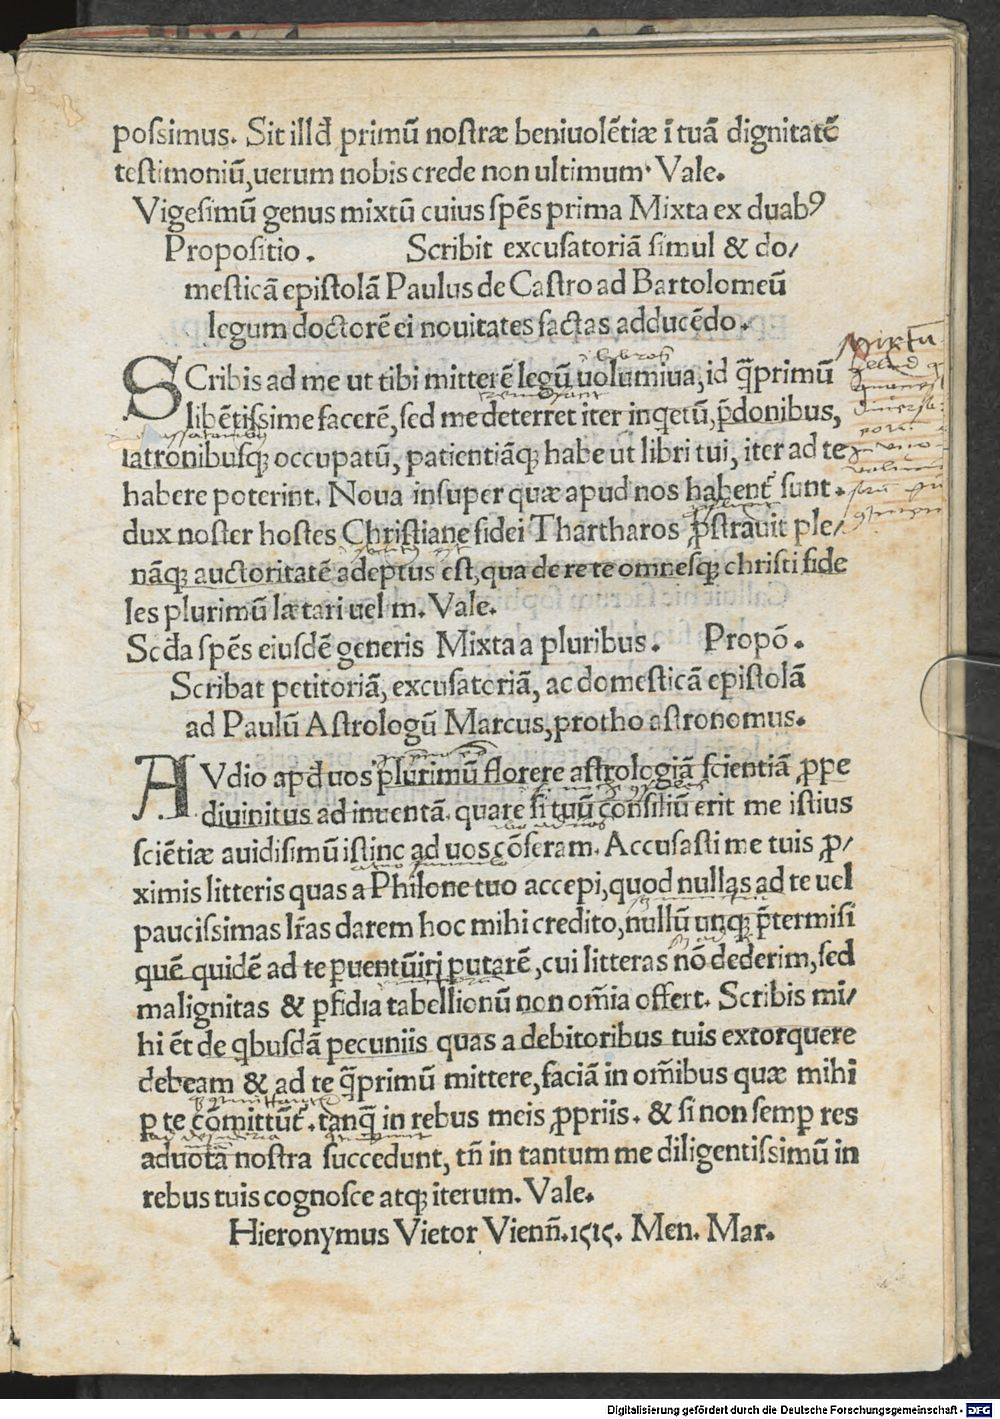 poſsimus. Sit illd̄ primū noſtræ beniuolētiæ ī tuā dignitatē
teſtimoniū, uerum nobis crede non ultimum. Vale.
Vigeſimū genus mixtū cuius ſpēs prima Mixta ex duabꝰ
Propoſitio. Scribit excuſatoriā ſimul & do/
meſticā epiſtolā Paulus de Caſtro ad Bartolomeū
legum doctorē ei nouitates factas adducēdo.
SCribis ad me ut tibi mitterē legū uolumiua, id q̄primū
libētiſsime facerē, ſed me deterret iter inq̇etū, p̄donibus,
latronibusqꝫ occupatū, patientiāqꝫ habe ut libri tui, iter ad te
habere poterint. Noua inſuper quæ apud nos habent̄ ſunt.
dux noſter hoſtes Chriſtiane fidei Thartharos ꝓſtrauit ple/
nāqꝫ auctoritatē adeptus eſt, qua de re te omneſqꝫ chriſti fide
les plurimū lætari uel m. Vale.
Scd̄a ſpēs eiuſdē generis Mixta a pluribus. Propō.
Scribat petitoriā, excuſatoriā, ac domeſticā epiſtolā
ad Paulū Aſtrologū Marcus, protho aſtronomus.
AVdio apd̄ uos plurimū florere aſtrologiā ſcientiā ꝓpe
diuinitus ad inuentā. quare ſi tuū conſiliū erit me iſtius
ſciētiæ auidiſimū iſtinc ad uos cōferam. Accuſaſti me tuis ꝓ/
ximis litteris quas a Philone tuo accepi, quod nullas ad te uel
pauciſsimas lr̄as darem hoc mihi credito, nullū unqꝫ p̄termiſi
quē quidē ad te ꝑuentūiri putarē, cui litteras nō dederim, ſed
malignitas & ꝑfidia tabellionū non om̄ia offert. Scribis mi/
hi ēt de q̇buſdā pecuniis quas a debitoribus tuis extorquere
debeam & ad te q̄primū mittere, faciā in om̄ibus quæ mihi
ꝑ te cōmittūt̄. tanq̄ in rebus meis ꝓpriis. & ſi non ſemꝑ res
aduota noſtra ſuccedunt, tn̄ in tantum me diligentiſsimū in
rebus tuis cognoſce atqꝫ iterum. Vale.
Hieronymus Vietor Vienn̄. 1515. Men. Mar.
Digitalisierung gefördert durch die Deutsche Forschungsgemeinschaft - DFG